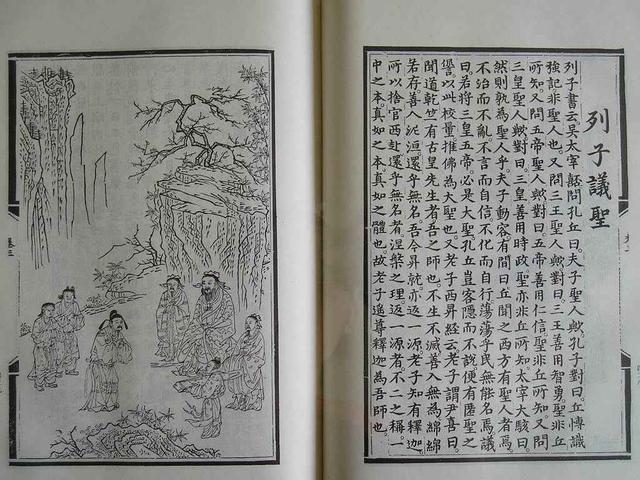 列子議聖
列子書云吳太宰嚭問孔丘曰夫子聖人歟孔子對曰丘博識
強記非聖人也又問三王聖人歟對曰三王善用智勇聖非丘
所知又問五帝聖人歟對曰五帝善用仁信聖非丘所知又問
三皇聖人歟對曰三皇善用時政聖亦非丘所知太宰大駭曰
然則孰為聖人乎夫子動容有間曰丘聞之西方有聖人者焉
不治而不亂不言而自信不化而自行蕩蕩乎民無能名焉議
曰若將三皇五帝必是大聖孔丘豈容隱而不說便有匿聖之
諐以此校量推佛為大聖也老子西昇經云老子謂尹喜曰
聞道乾竺有古皇先生者吾之師也不生不滅善入無為綿綿
若存善入泥洹還乎無名吾今昇就亦返一源老子知有釋迦
所以捨官西赴還乎無名者涅槃之理返一源者不二之稱
中之本真如之體也故老子遥尊釋迦為吾師也
卷三